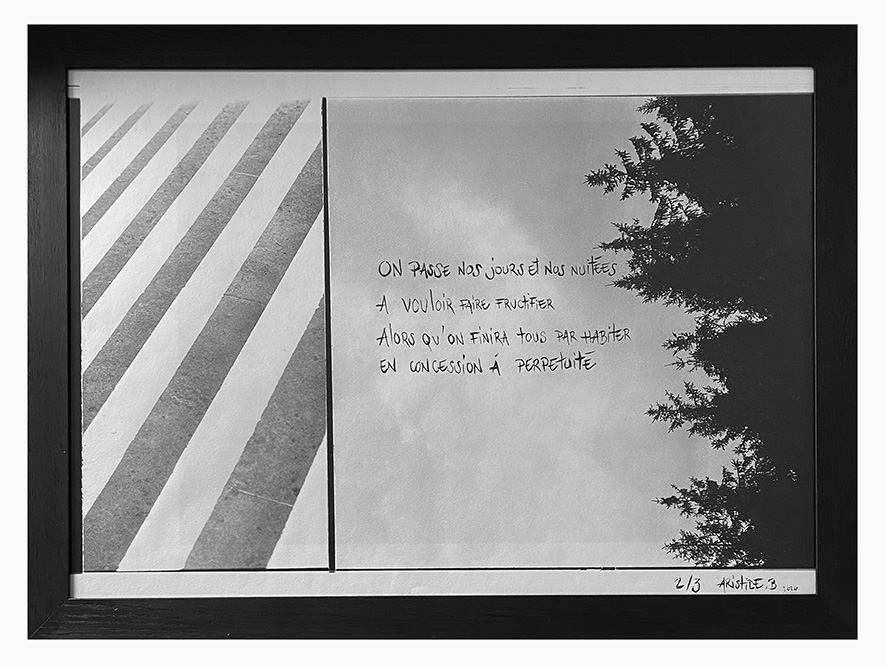 ON PASSE NOS JOURS ET NOS NUITÉES
A VOULOIR FAIRE FRUCTIFIER
ALORS QU'ON FINIRA TOUS PAR HABITER
EN CONCESSION À PERPETUITÉ
2/3 ARISTIDE.B 2020